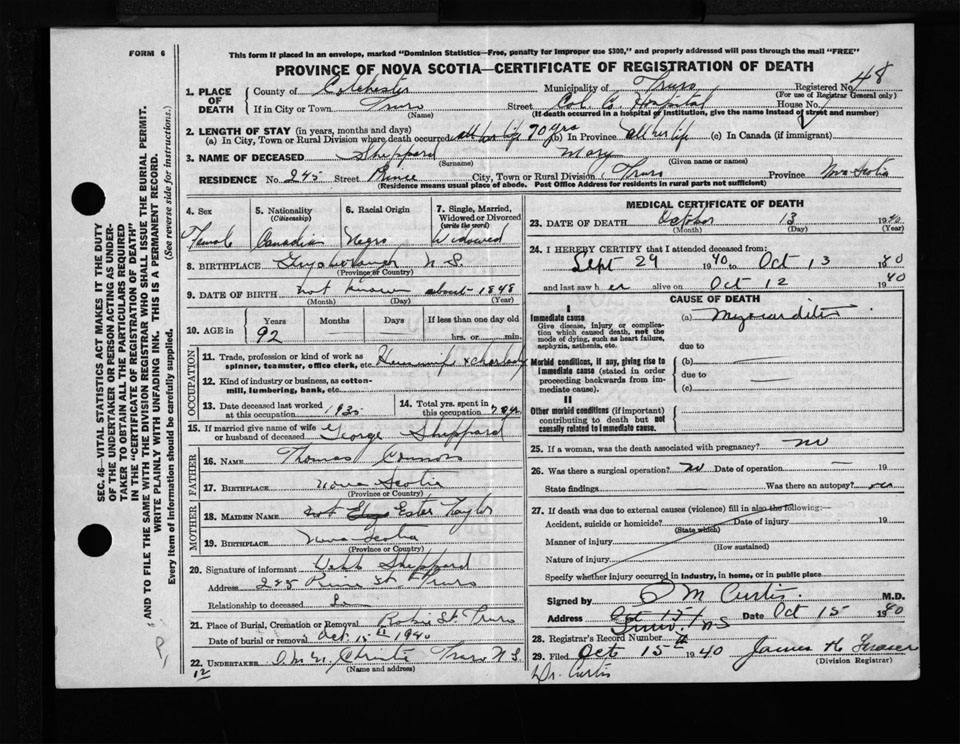 FORM 6
This form if placed in an envelope, marked "Dominion Statistics—Free, penalty for improper use $300," and properly addressed will pass through the mail "FREE"
PROVINCE OF NOVA SCOTIA—CERTIFICATE OF REGISTRATION OF DEATH
SEC. 46—VITAL STATISTICS ACT MAKES IT THE DUTY
OF THE UNDERTAKER OR PERSON ACTING AS UNDER-
TAKER TO OBTAIN ALL THE PARTICULARS REQUIRED
IN THE "CERTIFICATE OF REGISTRATION OF DEATH"
AND TO FILE THE SAME WITH THE DIVISION REGISTRAR WHO SHALL ISSUE THE BURIAL PERMIT.
WRITE PLAINLY WITH UNFADING INK. THIS IS A PERMANENT RECORD.
Every item of information should be carefully supplied. (See reverse side for instructions.)
1. PLACE OF DEATH
County of Colchester Municipality of Truro Registered No. 48
(For use of Registrar General only)
If in City or Town Truro Street Col. Co. Hospital House No.
(Name) (If death occurred in a hospital or institution, give the name instead of street and number)
2. LENGTH OF STAY (in years, months and days)
(a) In City, Town or Rural Division where death occurred all her life 70 yrs (b) In Province all her life (c) In Canada (if immigrant)
3. NAME OF DECEASED Sheppard Mary
(Surname) (Given name or names)
RESIDENCE No. 245 Street Prince City, Town or Rural Division Truro Province Nova Scotia
(Residence means usual place of abode. Post Office Address for residents in rural parts not sufficient)
4. Sex 5. Nationality (Citizenship) 6. Racial Origin 7. Single, Married, Widowed or Divorced (write the word)
Female Canadian Negro Widowed
8. BIRTHPLACE Guysborough N S.
(Province or Country)
9. DATE OF BIRTH not known about 1848
(Month) (Day) (Year)
10. AGE in Years Months Days If less than one day old
92 hrs. or min.
OCCUPATION
11. Trade, profession or kind of work as spinner, teamster, office clerk, etc. Housewife & charlady
12. Kind of industry or business, as cotton-mill, lumbering, bank, etc.
13. Date deceased last worked at this occupation 1935
14. Total years spent in this occupation
15. If married give name of wife or husband of deceased George Sheppard
FATHER
16. NAME Thomas Connors
17. BIRTHPLACE Nova Scotia
(Province or Country)
MOTHER
18. MAIDEN NAME Ester Taylor
19. BIRTHPLACE Nova Scotia
(Province or Country)
20. Signature of informant Sheppard
Address 245 Prince St. Truro
Relationship to deceased Son
21. Place of Burial, Cremation or Removal Robie St. Truro
Date of burial or removal Oct 15th 1940
22. UNDERTAKER Christie Truro N S.
(Name and address)
12
MEDICAL CERTIFICATE OF DEATH
23. DATE OF DEATH October 13 1940
(Month) (Day)
24. I HEREBY CERTIFY that I attended deceased from:
Sept 29 1940 to Oct 13 1940
and last saw her alive on Oct 12 1940
CAUSE OF DEATH
I
Immediate cause
Give disease, injury or complication which caused death, not the mode of dying, such as heart failure, asphyxia, asthenia, etc.
(a) Myocarditis
due to
Morbid conditions, if any, giving rise to immediate cause (stated in order proceeding backwards from immediate cause).
(b) —
due to —
(c)
II
Other morbid conditions (if important) contributing to death but not causally related to immediate cause.
25. If a woman, was the death associated with pregnancy? no
26. Was there a surgical operation? no Date of operation — 19
State findings Was there an autopsy? no
27. If death was due to external causes (violence) fill in also the following:—
Accident, suicide or homicide? Date of injury 19
(State which)
Manner of injury
(How sustained)
Nature of injury
Specify whether injury occurred in industry, in home, or in public place
Signed by Curtis. M.D.
Address Truro NS Date Oct 15 1940
28. Registrar's Record Number
29. Filed Oct 15th 1940 James H Fraser
(Division Registrar)
Dr. Curtis